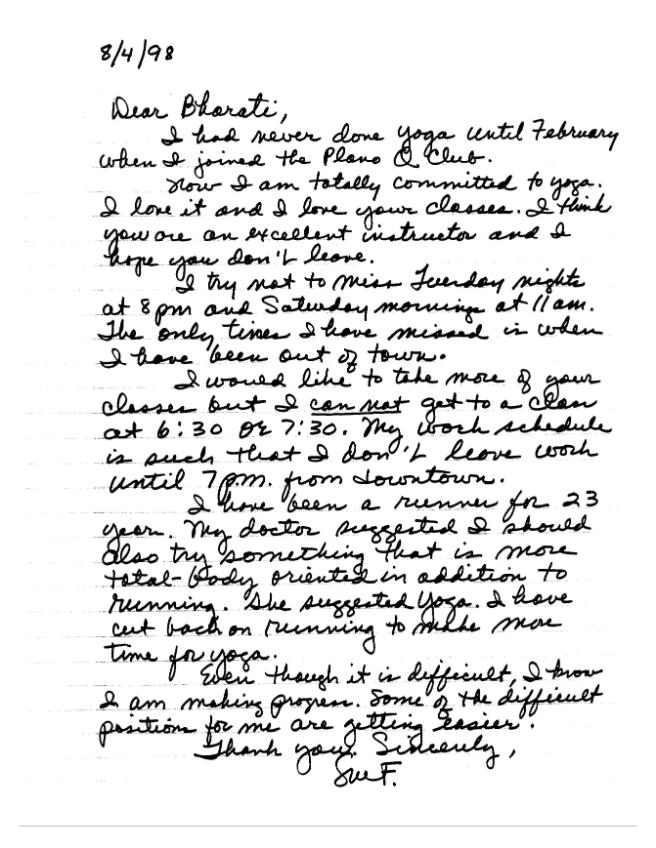 8/4/98
Dear Bharati,
I had never done yoga until February
when I joined the Plano Q Club.
Now I am totally committed to yoga.
I love it and I love your classes. I think
you are an excellent instructor and I
hope you don't leave.
I try not to miss Tuesday nights
at 8pm and Saturday mornings at 11am.
The only times I have missed is when
I have been out of town.
I would like to take more of your
classes but I can not get to a class
at 6:30 or 7:30. My work schedule
is such that I don't leave work
until 7p.m. from downtown.
I have been a runner for 23
years. My doctor suggested I should
also try something that is more
total-body oriented in addition to
running. She suggested Yoga. I have
cut back on running to make more
time for yoga.
Even though it is difficult, I know
I am making progress. Some of the difficult
positions for me are getting easier.
Thank you. Sincerely,
Sue F.